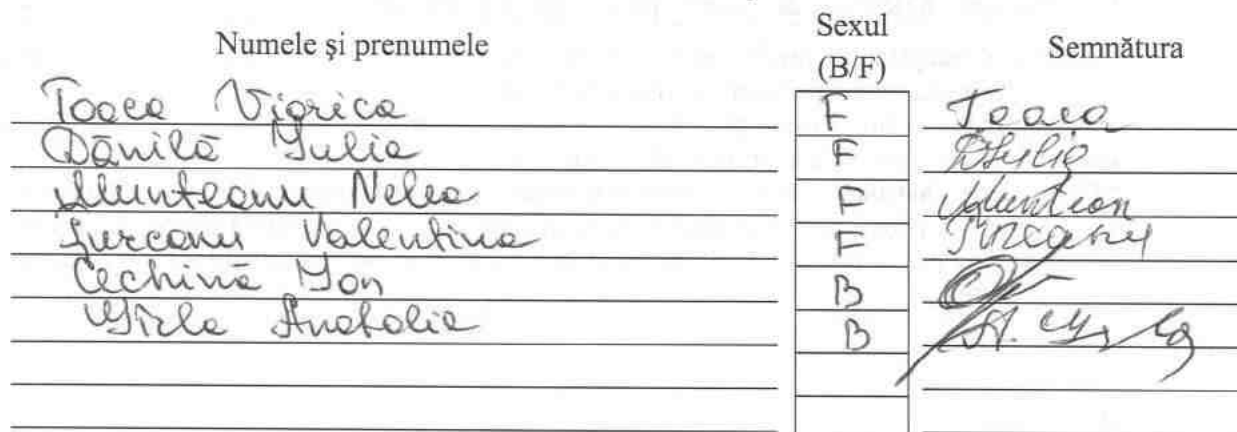 Numele şi prenumele Sexul (B/F) Semnătura
Toaca Viorica F Toaca
Dănilă Iulia F DIulia
Munteanu Nelea F Muntean
Țurcanu Valentina F Țurcanu
Cechină Ion B
Gîrla Anatolie B